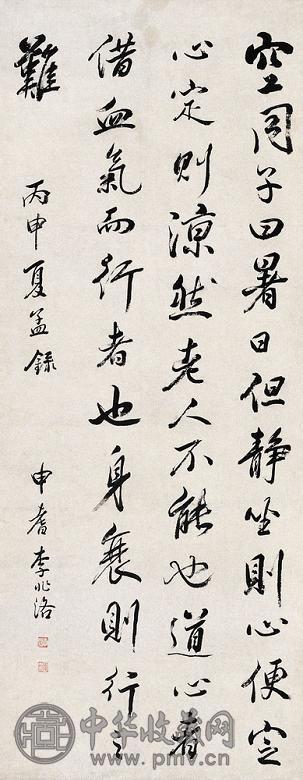 空同子曰暑日但静坐則心便定
心定則涼然老人不能也道心者
借血氣而行者也身衰則行之
難
丙申夏孟録
申耆李兆洛
中华收藏网
www.pmv.cn